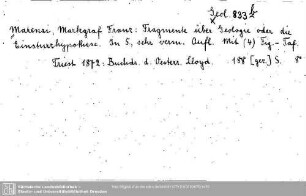 Geol. 833 b
Marenzi, Markgraf Franz: Fragmente über Geologie oder die
Einsturzhypothese. In 5, sehr verm. Aufl. Mit (4) Fig.-Taf.
Triest 1872: Buchdr. d. Oesterr. Lloyd. 188 [gez.] S. 8°
Sächsische Landesbibliothek -
Staats- und Universitätsbibliothek Dresden